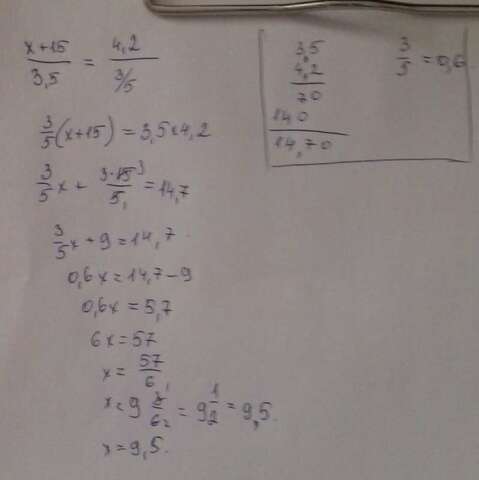 (x+15)/3,5 = 4,2/(3/5)
3/5(x+15) = 3,5×4,2
3/5x + 3·15/5 = 14,7
3/5x + 9 = 14,7
0,6x = 14,7-9
0,6x = 5,7
6x = 57
x = 57/6
x = 9 3/6 = 9 1/2 = 9,5.
x = 9,5.
3,5
4,2
70
140
14,70
3/5 = 0,6